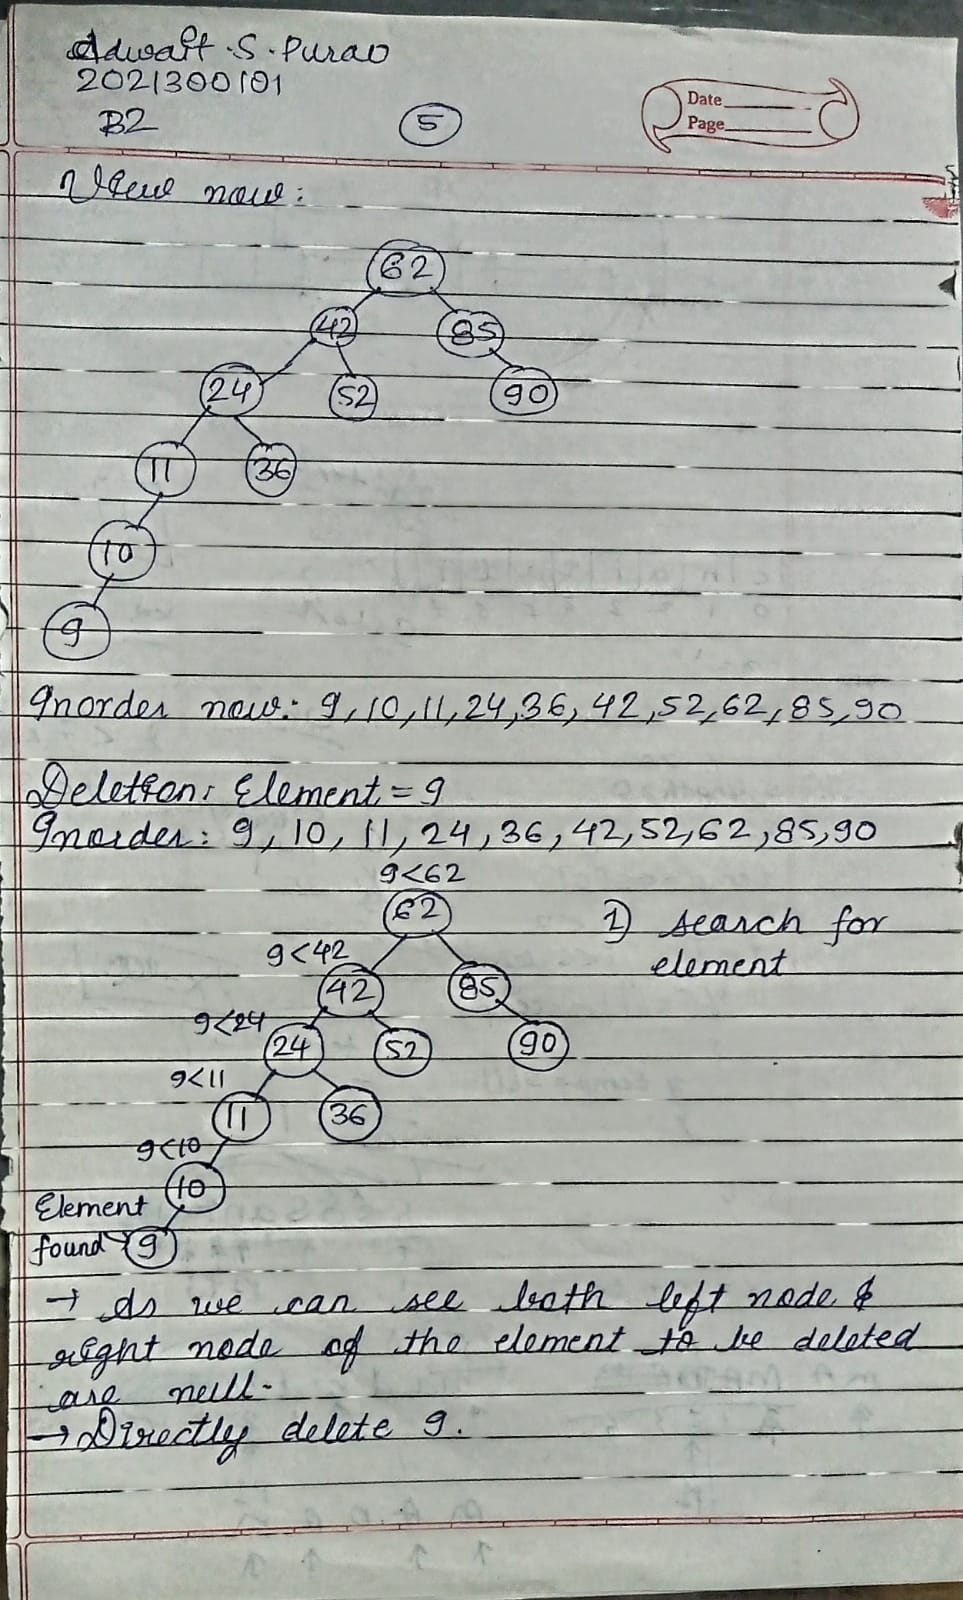 Adwait .S. Purao
2021300101
B2
5
Date
Page
View now:
62
42 85
24 52 90
11 36
10
9
Inorder now: 9, 10, 11, 24, 36, 42, 52, 62, 85, 90
Deletion: Element = 9
Inorder: 9, 10, 11, 24, 36, 42, 52, 62, 85, 90
9<62
62
1) search for
element
9<42
42 85
9<24
24 52 90
9<11
11 36
9<10
10
Element
found 9
→ As we can see both left node &
right node of the element to be deleted
are null.
→ Directly delete 9.